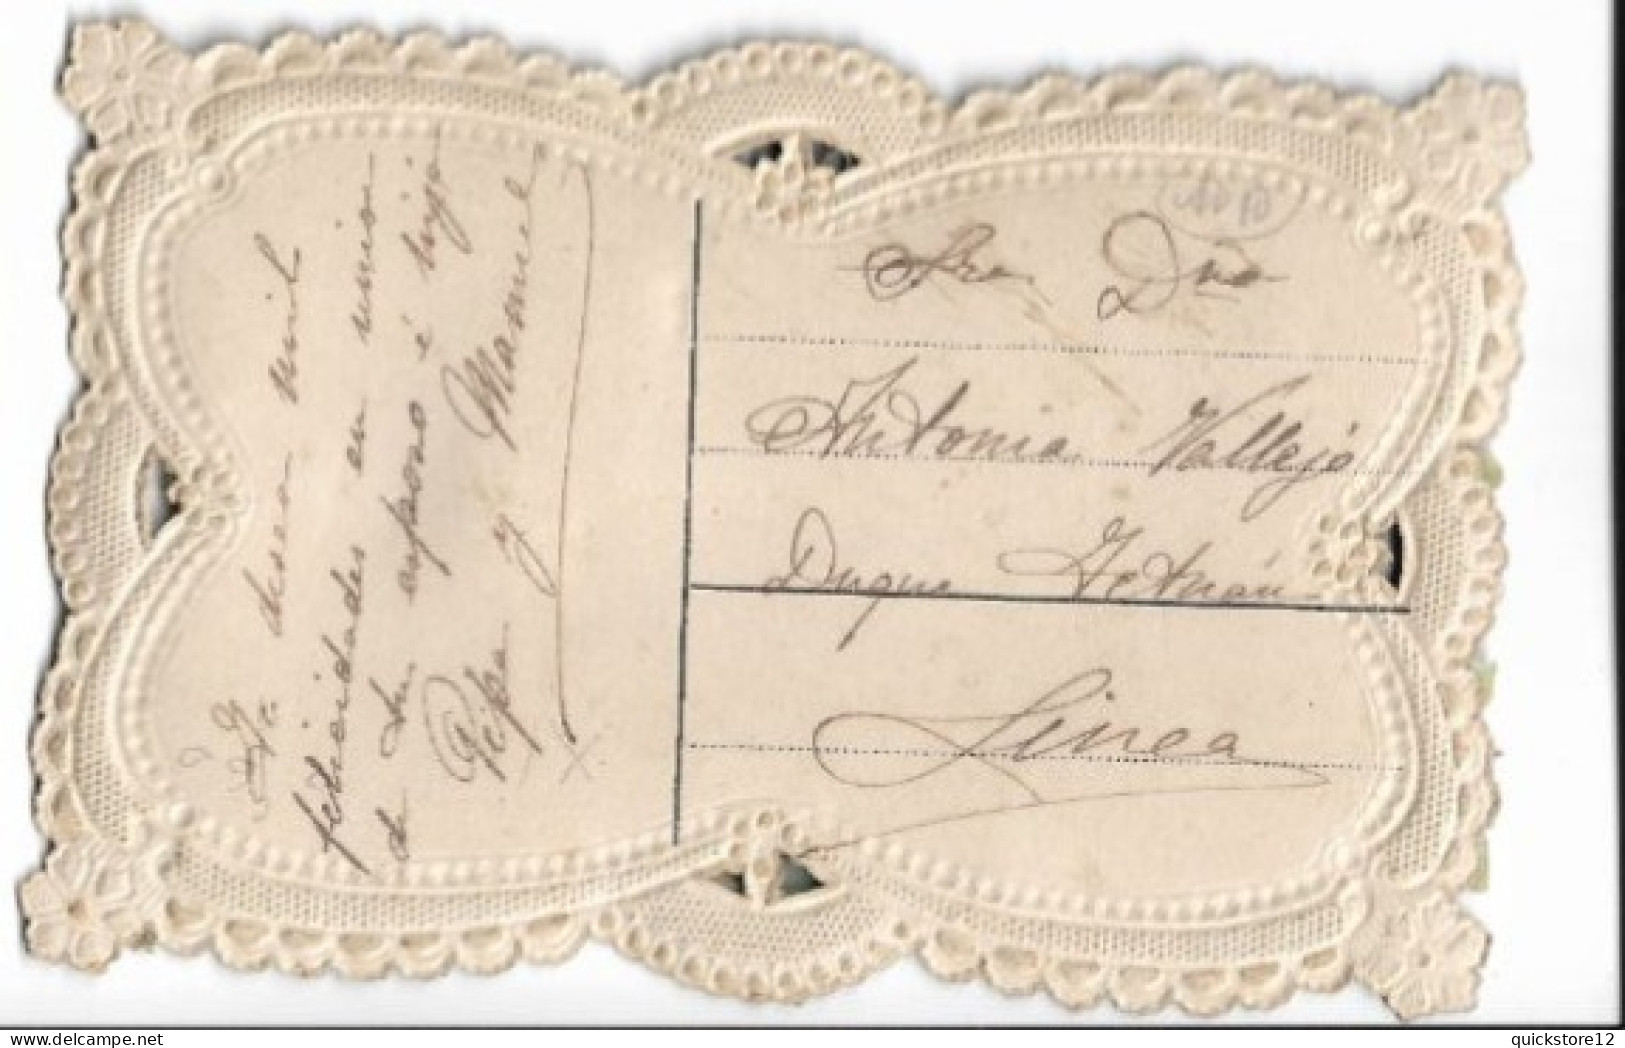 Le desea mil
felicidades en union
de su esposo é hijo
Pepa y Manuel
Sra Dña
Antonia Vallejo
Duque Tetuán
Linea
quickstore12